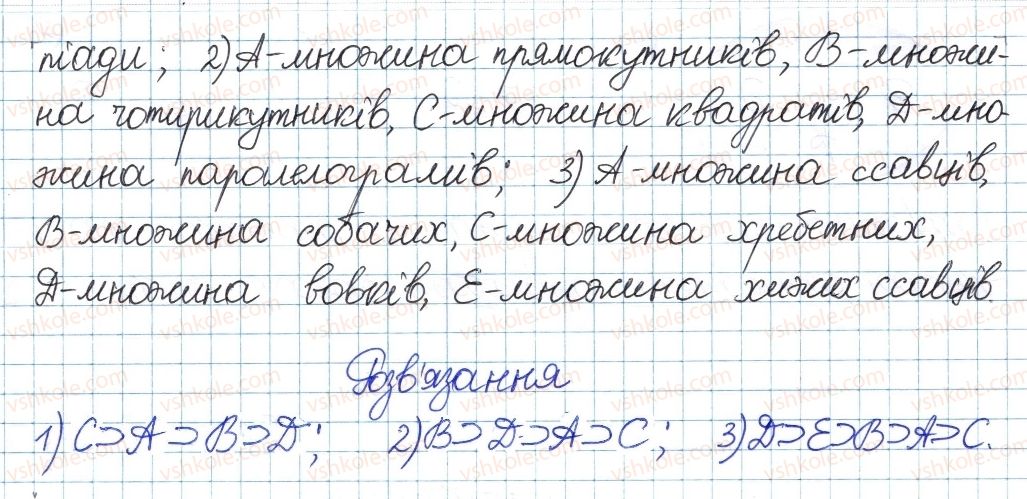 піади; 2) А-множина прямокутників, В-множи-
на чотирикутників, С-множина квадратів, D-мно-
жина паралелограмів; 3) А-множина ссавців,
В-множина собачих, С-множина хребетних,
D-множина вовків, Е-множина хижих ссавців
Розв'язання
1) C⊃A⊃B⊃D; 2) B⊃D⊃A⊃C; 3) D⊃E⊃B⊃A⊃C.